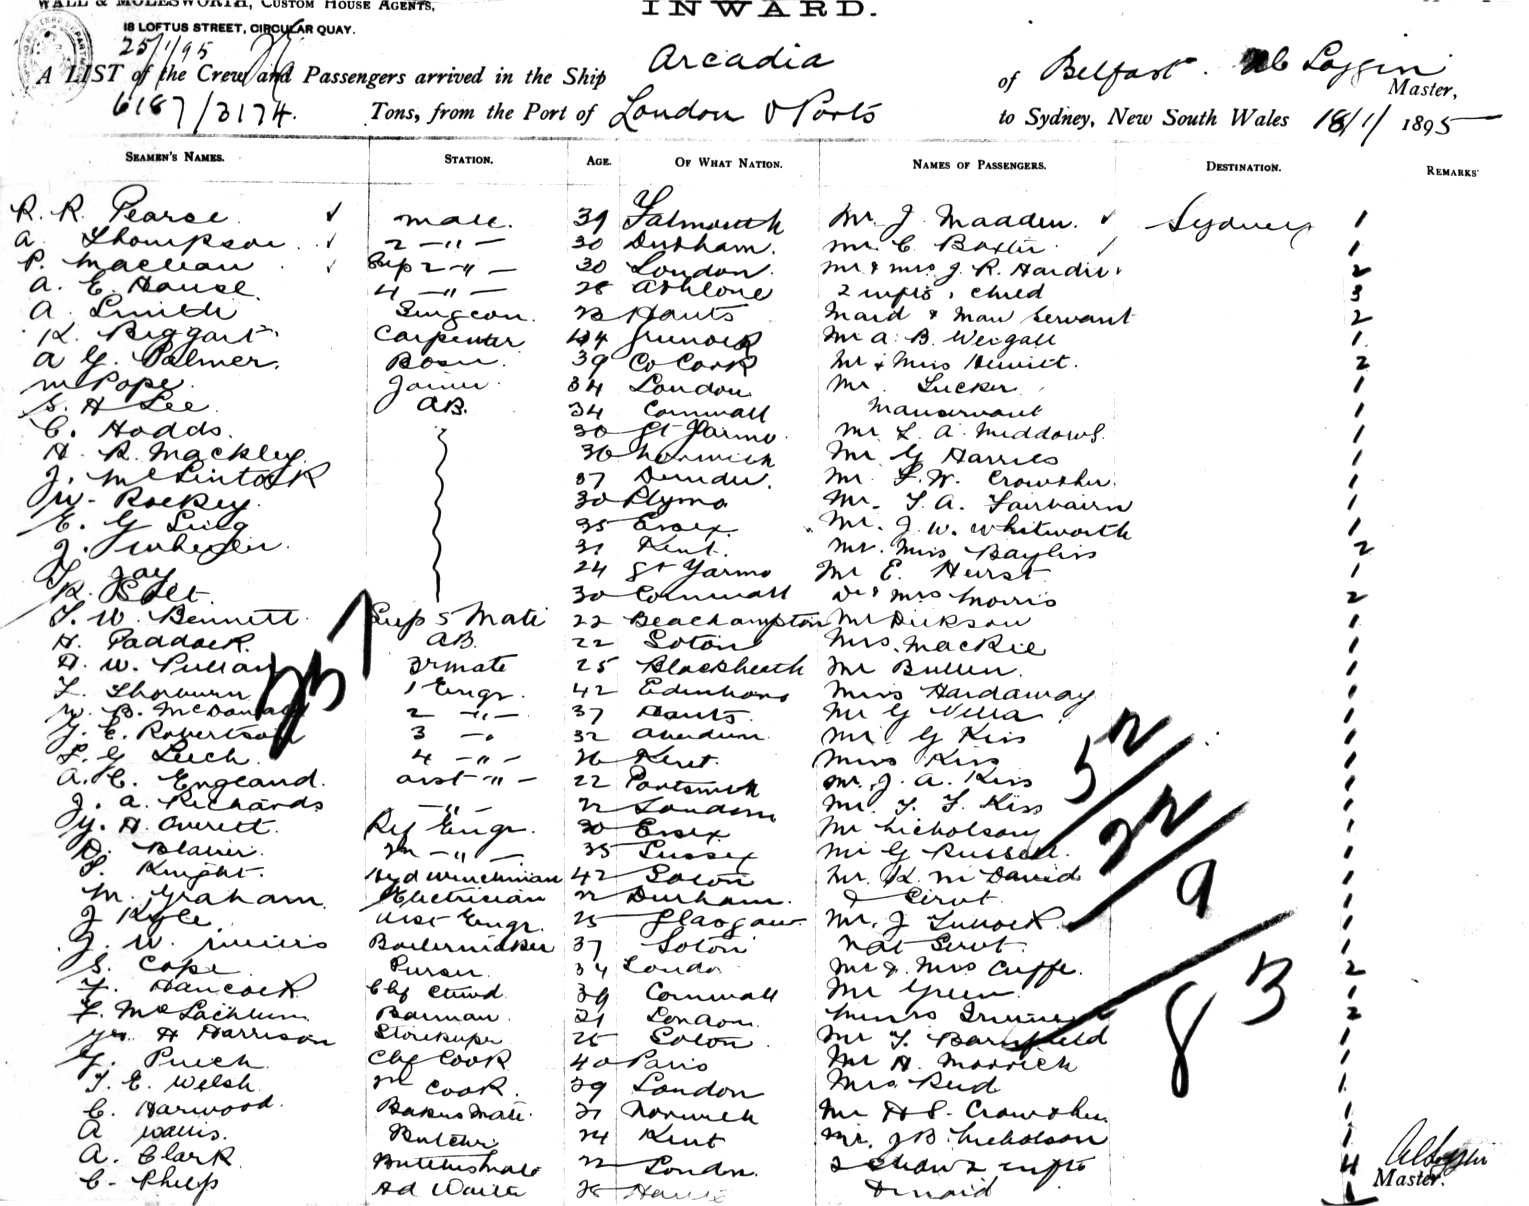 WALL & MOLESWORTH, CUSTOM HOUSE AGENTS,
18 LOFTUS STREET, CIRCULAR QUAY.
INWARD.
25/1/95
A LIST of the Crew and Passengers arrived in the Ship Arcadia of Belfast. Loggin Master,
6187/3174. Tons, from the Port of London & Ports to Sydney, New South Wales 18/1/1895
SEAMEN'S NAMES. STATION. AGE. OF WHAT NATION. NAMES OF PASSENGERS. DESTINATION. REMARKS
R. R. Pearse. Mate. 39 Falmouth Mr J. Madden. Sydney 1
A. Thompson. 2 -"- 30 Durham. Mr C. Baxter 1
P. Maclean Sup 2 -"- 30 London. Mr & Mrs J. R. Hardie 2
A. E. House. 4 -"- 28 Athlone 2 infts, child 3
A. Smith Surgeon. 23 Hants Maid & Man Servant 2
K. Biggart. Carpenter 44 Greenock Mr A. B. Weigall 1
A G. Palmer. Bosn. 39 Co Cork Mr & Miss Hewitt. 2
M Pope. Joiner. 34 London Mr. Tucker 1
S. H Lee AB. 34 Cornwall Manservant 1
C. Hodds. 30 Gt Yarmo. Mr L. A. Meddows. 1
H. R. Mackley. 36 Norwich Mr G Harries 1
J. McLintock 37 Dundee. Mr. F. W. Crowther. 1
W. Rockey. 30 Plymo Mr. T. A. Fairbairn 1
E. G Ling 35 Essex Mr. J. W. Whitworth 1
J. Wheeler. 31 Kent. Mr. Miss Bayliss 2
T. Jay 24 Gt Yarmo Mr E. Hurst 1
R. 30 Cornwall Dr & Mrs Morris 2
T. W. Bennett. Sup 5 Mate 22 Beachampton Mr Dickson 1
H. Paddock. AB 22 Soton Mrs. Mackie 1
H. W. Pullan 3r Mate 25 Blackheath Mr Bullen. 1
T. Thorburn 1 Engr. 42 Edinboro Miss Hardaway 1
W. B. McDonald 2 -"- 37 Hants. Mr G Villa 1
J. E. Robertson 3 -" 32 Aberdeen Mr. G Kiss 1
L. G Leech. 4 -"- 26 Kent. Miss Kiss 1
A. C. England. Asst -"- 22 Portsmth Mr. J. A. Kiss 1
J. A. Richards -"- 22 London Mr. T. F. Kiss 1
Y. H. Overett. Ref Engr. 30 Essex Mr Nicholson 1
D. Blaber. 2n -"- 35 Sussex Mr G Russell. 1
T. Knight. Hyd Winchman 42 Soton Mr. K. McDavid 1
M. Graham. Electrician 22 Durham. & Servt. 1
J Kyle Asst Engr. 25 Glasgow Mr. J. Tullock 1
J. W. Boilermaker 37 Soton Nat Servt. 1
S. Cope. Purser. 34 London Mr & Mrs Cuffe. 2
F. Hancock Chf Stwd. 39 Cornwall Mr Green 1
F. McLachlan. Barman. 21 London. Misses 2
H Harrison Storekeeper 25 Soton Mr T. Barnfield 1
G. Puech. Chf Cook 40 Paris Mr H. 1
T. E. Welsh. 2n Cook. 29 London Mrs Reid 1
C. Harwood. Bakers Mate. 21 Norwich Mr H S. Crowther 1
A Wallis. Butcher 24 Kent Mr. J B. Nicholson 1
A. Clark Butchers Mate 22 London. 4
C. Phelp Hd Waiter 28 & maid 1
23
52
22
9
83
Master.